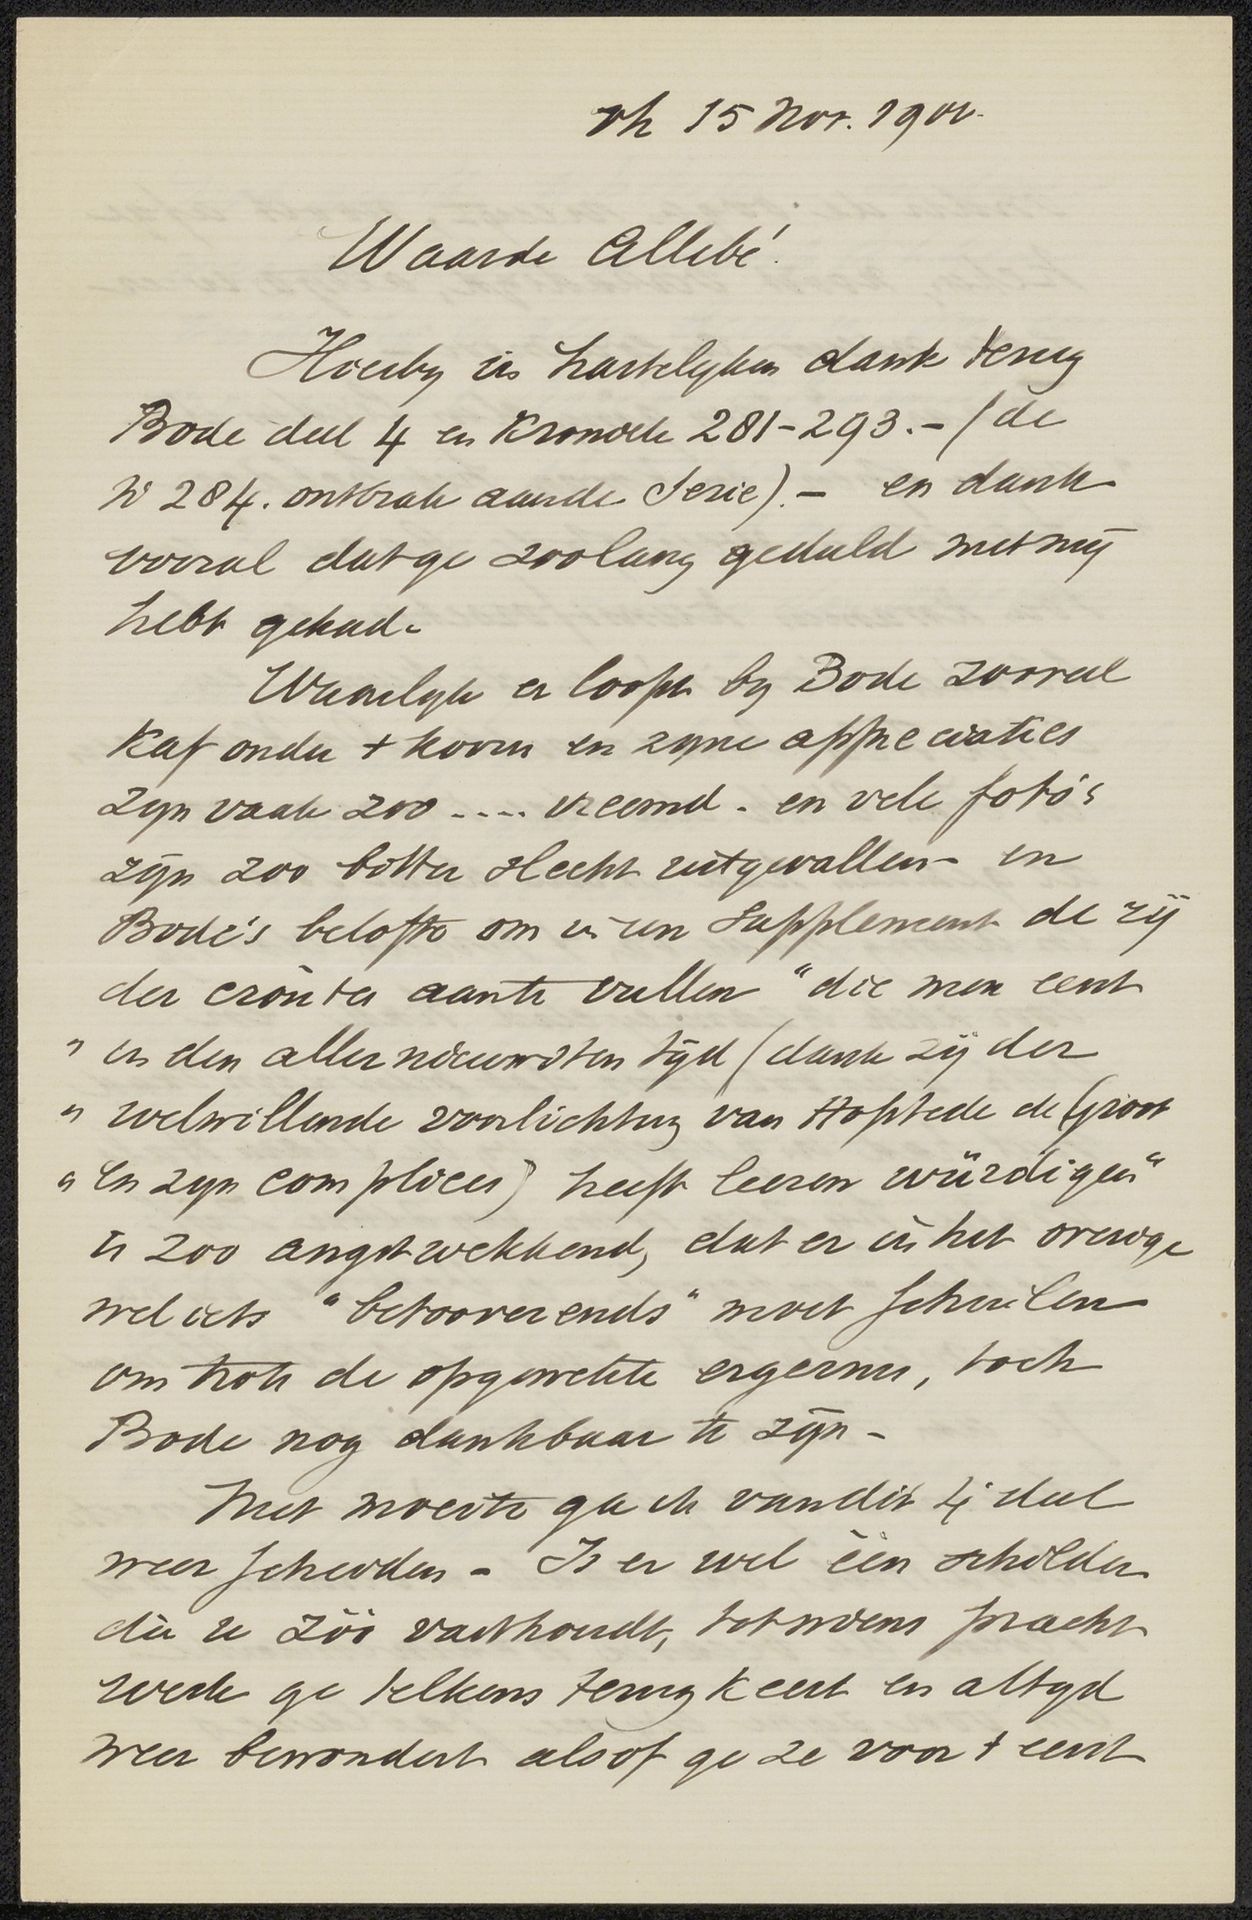 15 Nov. 190
Waarde Allebé!
Hierby in hartelyken dank terug
Bode deel 4 en Kroniek 281-293.- (de
No 284. ontbrak aan de serie).- en dank
vooral dat ge zoolang geduld met mij
hebt gehad.
Waarlyk er loopt by Bode zooveel
Kaf onder 't koorn en zyne appreciaties
zyn vaak zoo .... vreemd. en vele foto's
zijn zoo bitter slecht uitgevallen - en
Bode's belofte om in een Supplement de rij
der croûtes aan te vullen "die men eerst
" in den allernieuwsten tijd (dank zij der
" welwillende voorlichting van Hofstede de Groot
" en zyn complices) heeft leeren würdigen"
is zoo angstwekkend, dat er in het overige
wel iets "betooverends" moet schuilen
om trots de opgewekte ergernis, toch
Bode nog dankbaar te zijn -
Met moeite ga ik van dit 4e deel
weer scheiden - Is er wel één schilder
die u zóó vasthoudt, tot wiens pracht
werk ge telkens terugkeert en altyd
weer bewondert alsof ge ze voor 't eerst